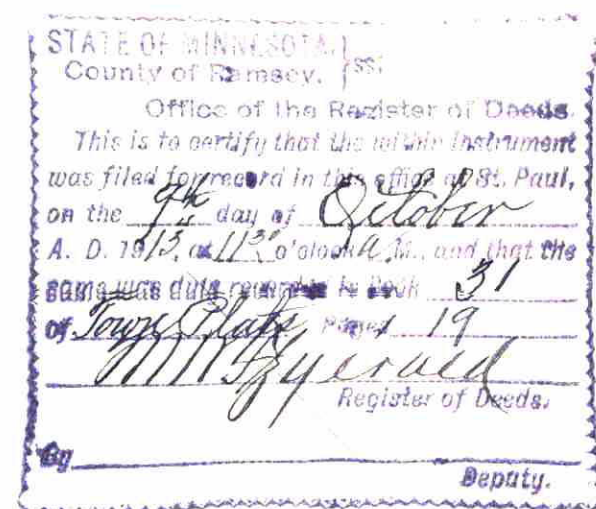 STATE OF MINNESOTA. } SS.
County of Ramsey.
Office of the Register of Deeds.
This is to certify that the within instrument
was filed for record in this office at St. Paul,
on the 9th day of October
A. D. 1913, at 11 30 o'clock A. M., and that the
same was duly recorded in Book 31
of Town Plats Page 19
Fitzgerald
Register of Deeds.
By
Deputy.